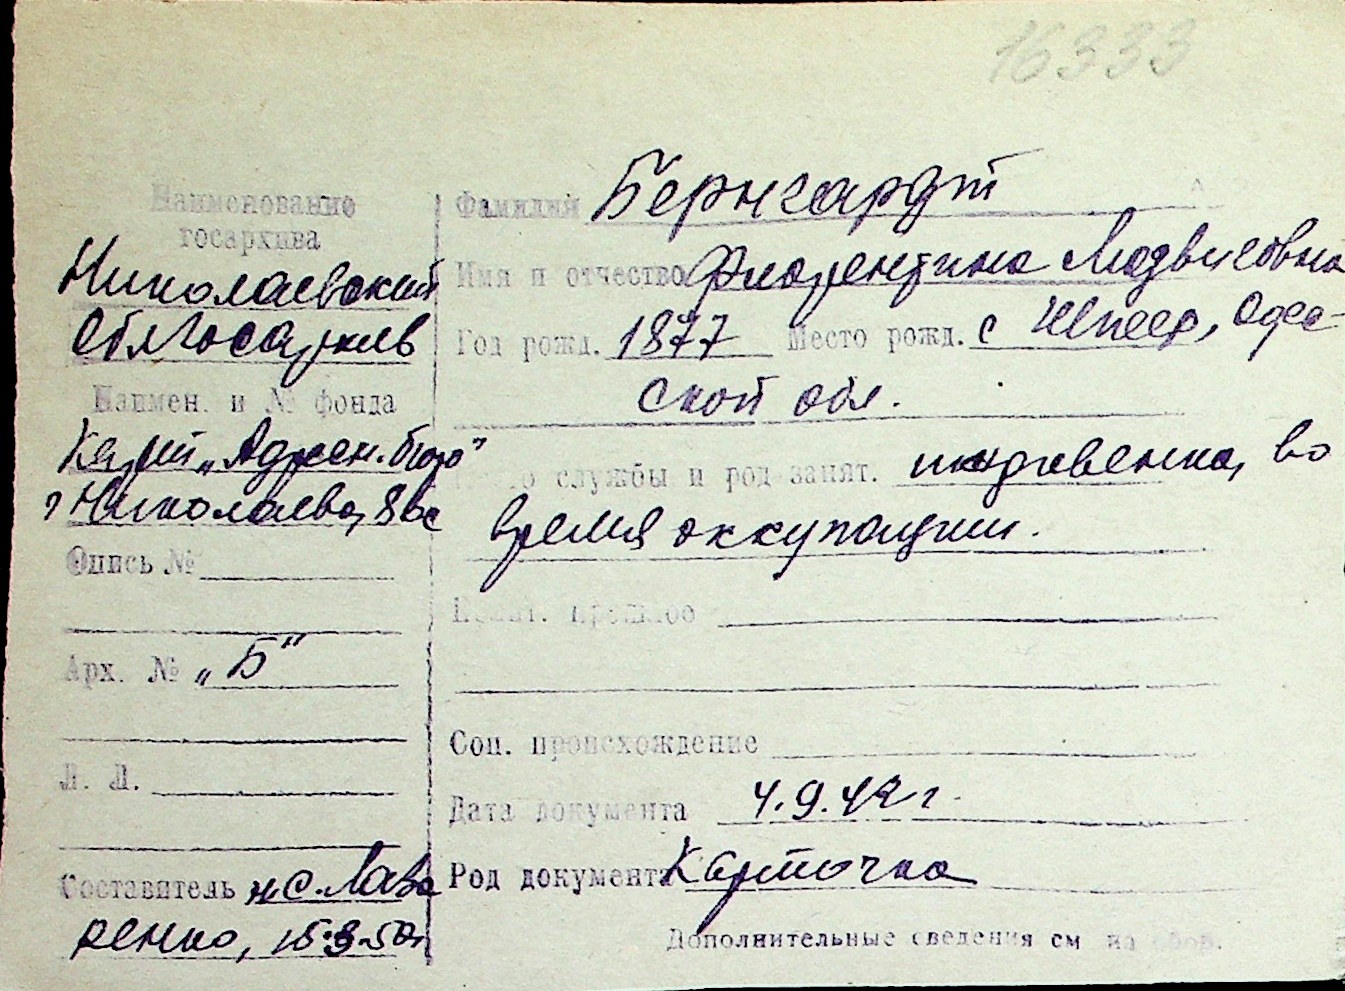 16333
Наименование
госархива
Николаевский
облгосархив
Наимен. и № фонда
г Николаева,
Опись №
Арх. № „Б"
Л. Л.
Составитель н.с. Лава
ренко,
Фамилия Бернгардт
Имя и отчество Флорентина Людвиговна
Год рожд. 1877 Место рожд. с Шпеер, Одес-
ской обл.
службы и род занят. иждивенка, во
время оккупации.
Соц. происхождение
Дата документа 4.9.42 г.
Род документа Карточка
Дополнительные сведения см на обор.